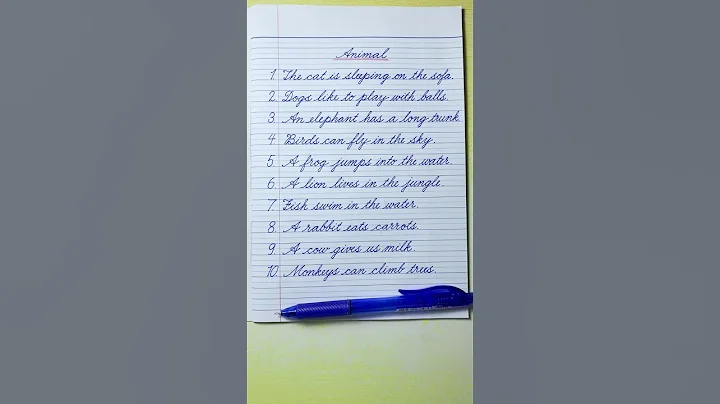 Animal
1. The cat is sleeping on the sofa.
2. Dogs like to play with balls.
3. An elephant has a long trunk.
4. Birds can fly in the sky.
5. A frog jumps into the water.
6. A lion lives in the jungle.
7. Fish swim in the water.
8. A rabbit eats carrots.
9. A cow gives us milk.
10. Monkeys can climb trees.